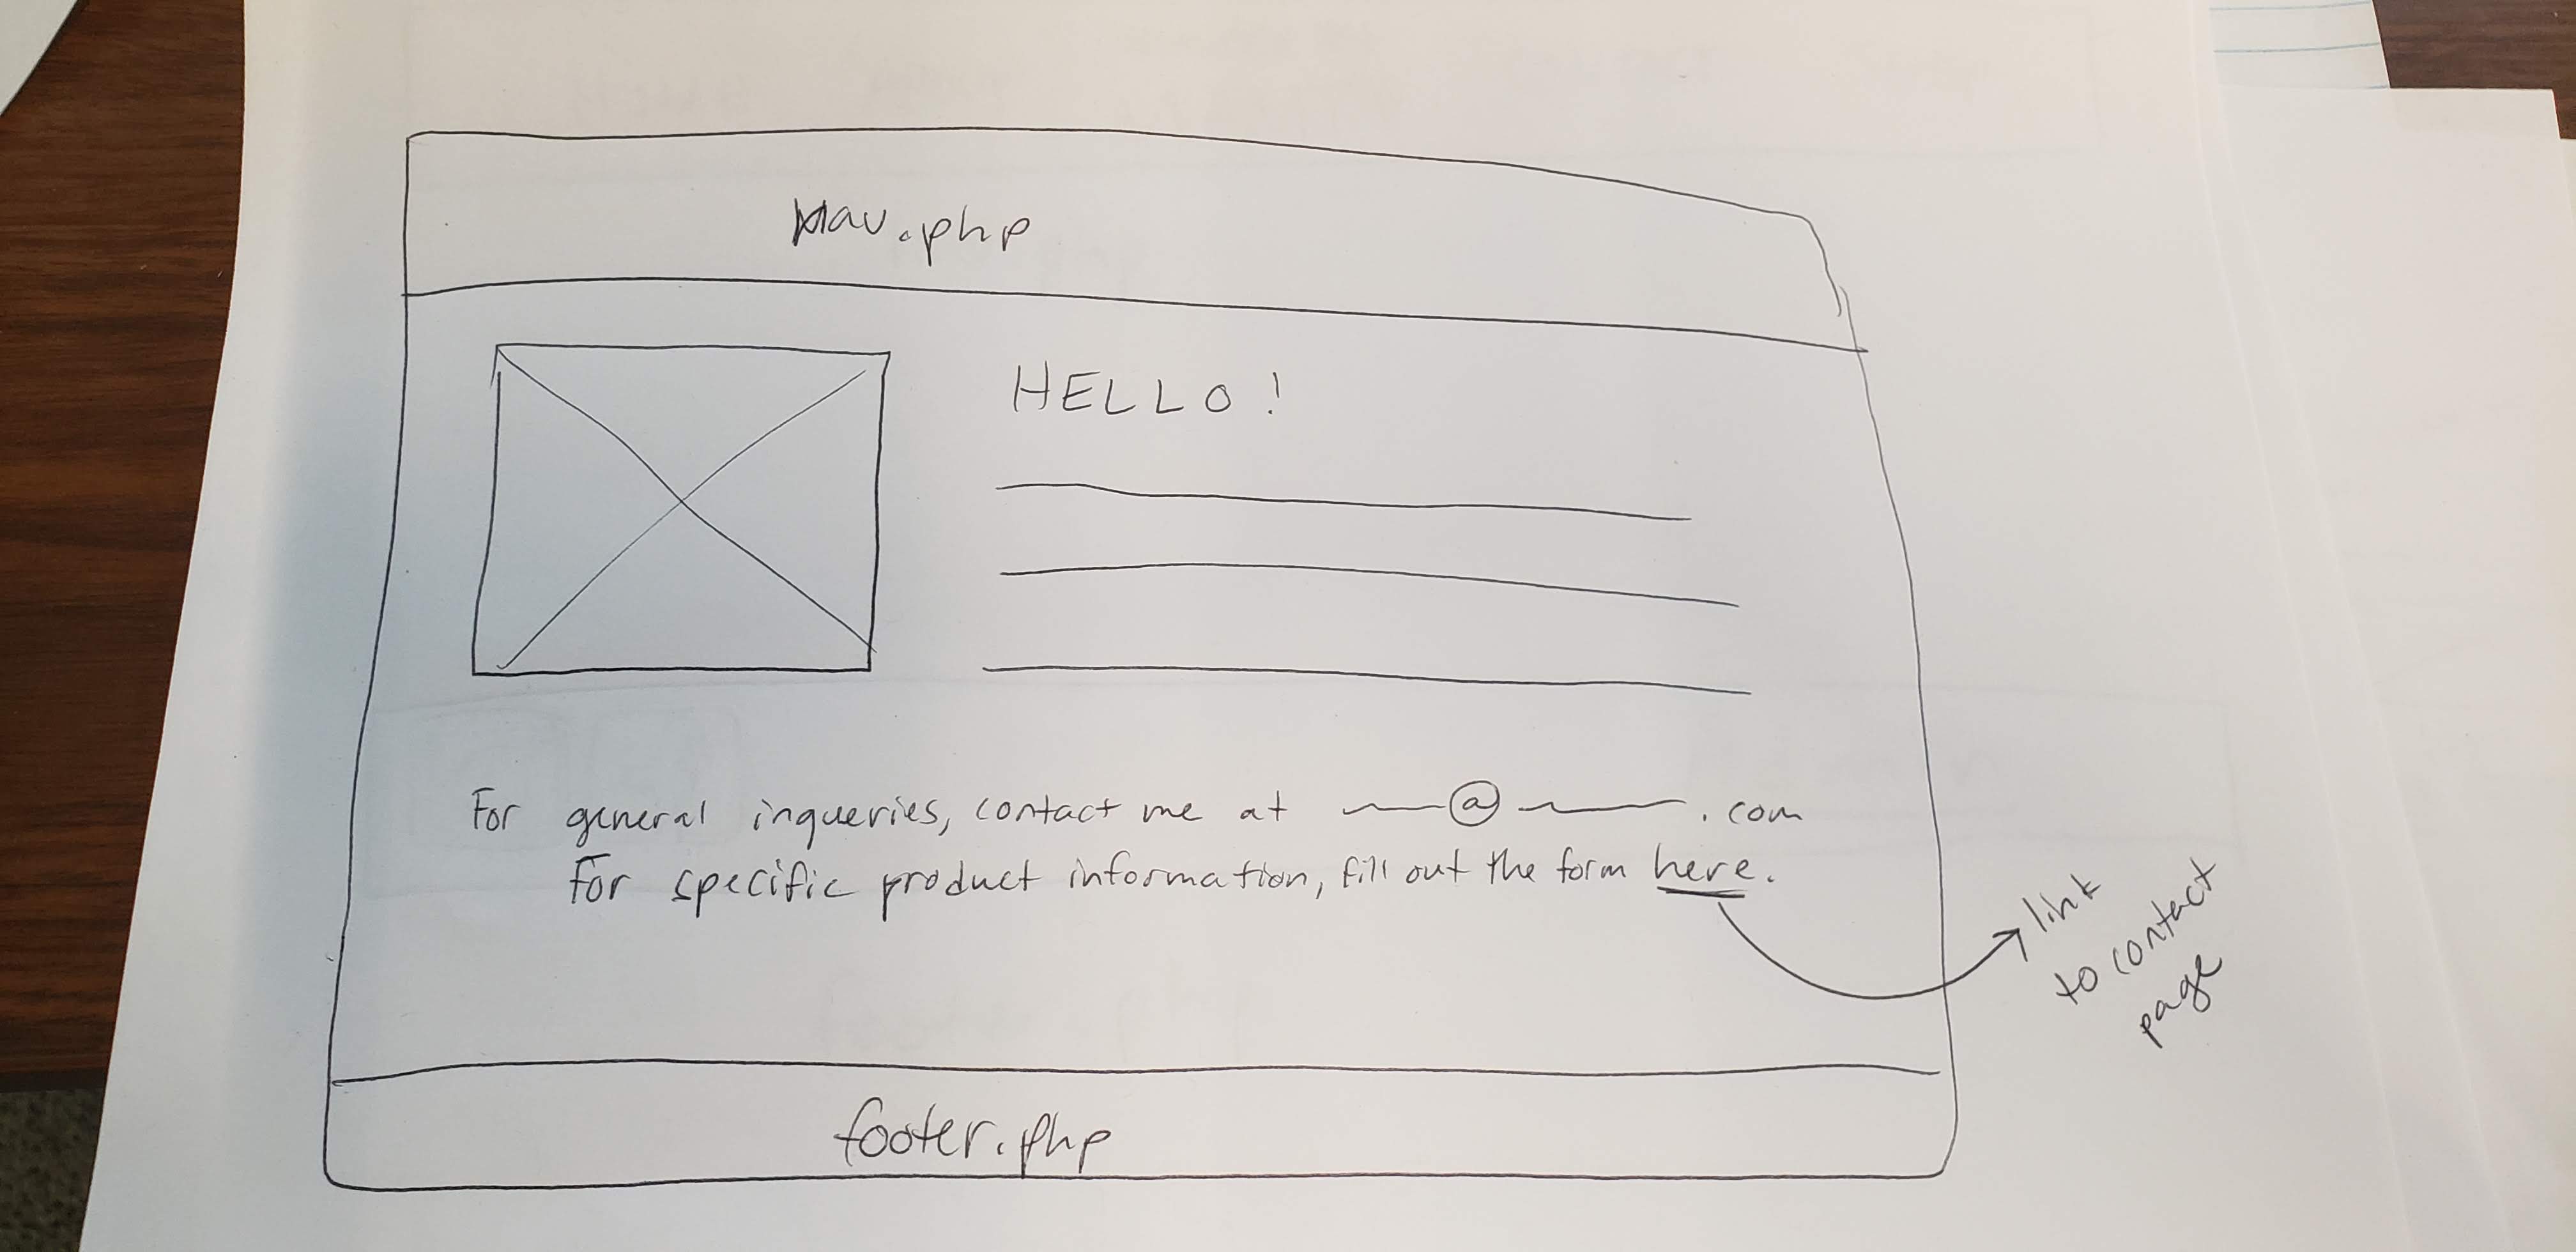 nav.php
HELLO!
For general inqueries, contact me at @ .com
For specific product information, fill out the form here.
link
to contact
page
footer.php